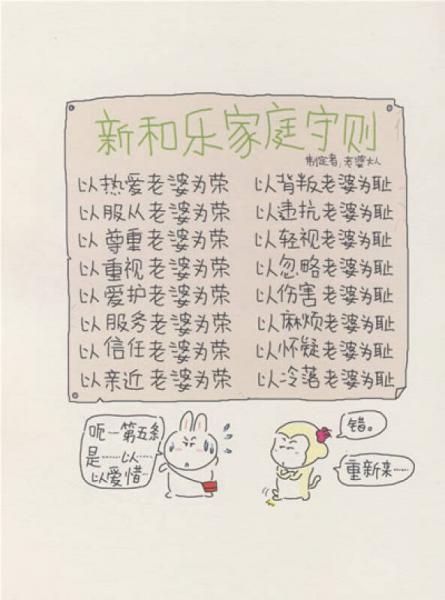 新和乐家庭守则
制定者:老婆大人
以热爱老婆为荣 以背叛老婆为耻
以服从老婆为荣 以违抗老婆为耻
以尊重老婆为荣 以轻视老婆为耻
以重视老婆为荣 以忽略老婆为耻
以爱护老婆为荣 以伤害老婆为耻
以服务老婆为荣 以麻烦老婆为耻
以信任老婆为荣 以怀疑老婆为耻
以亲近老婆为荣 以冷落老婆为耻
呃—第五條
是……以…
以爱惜…
错。
重新来……